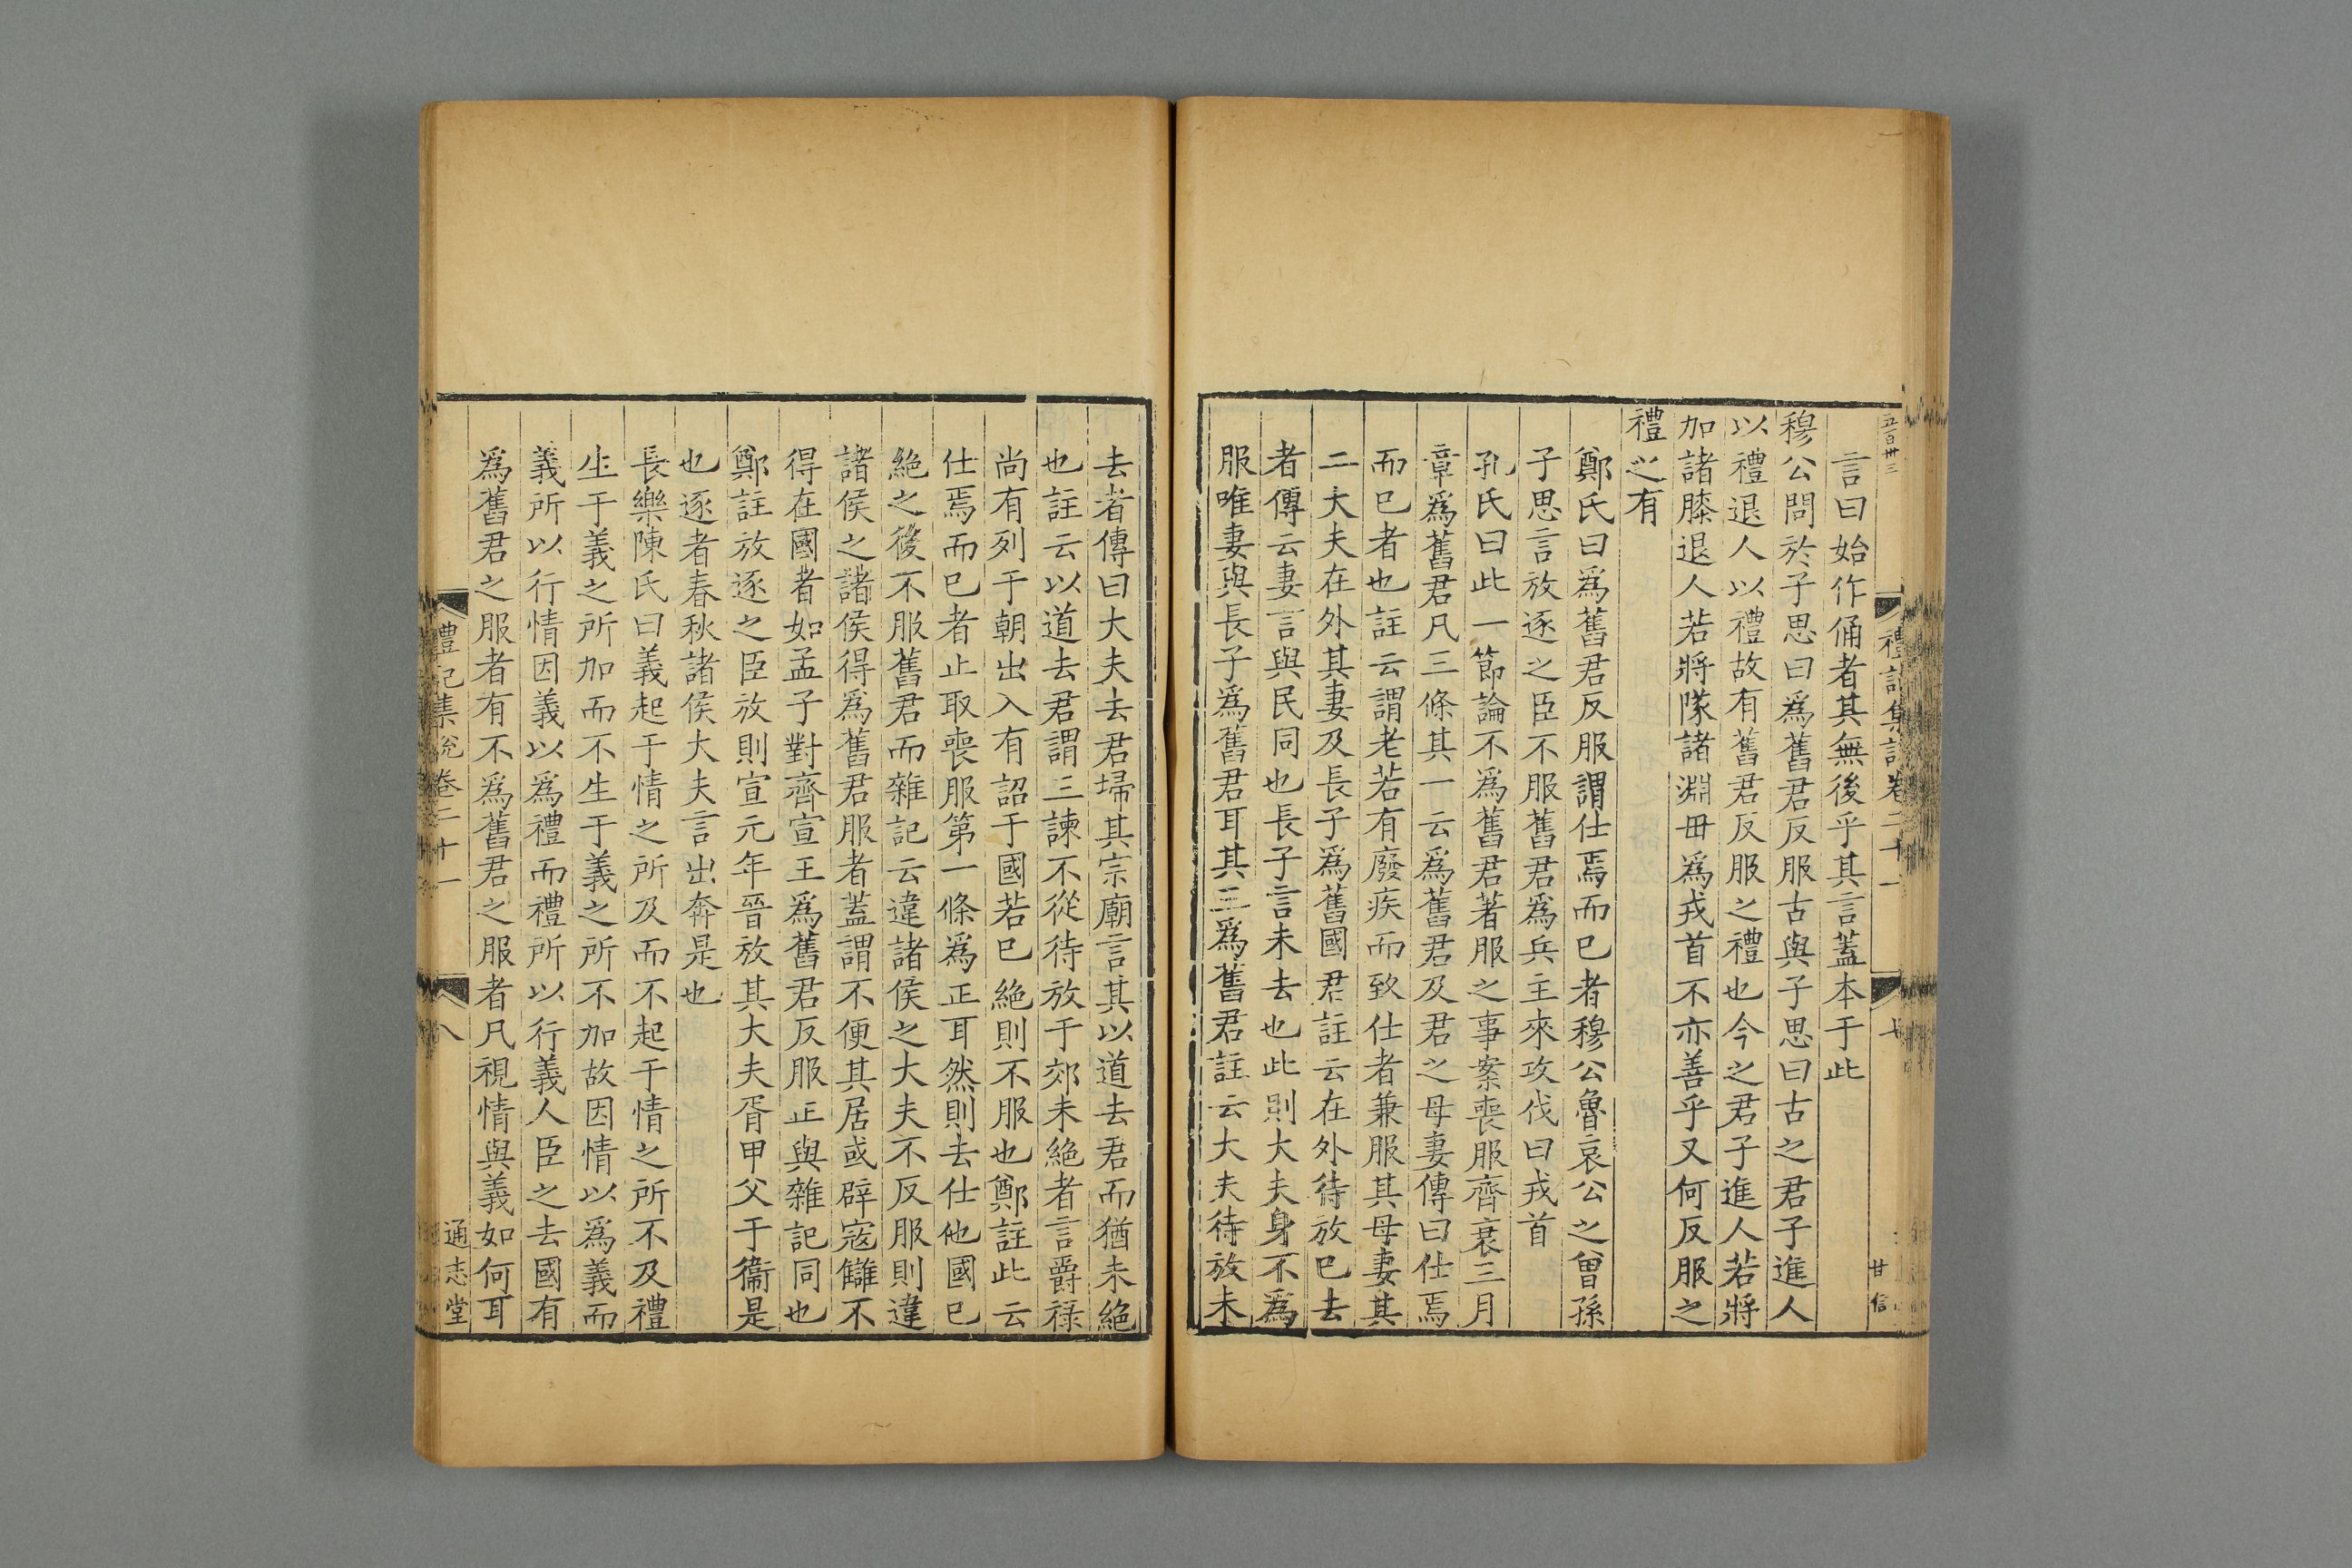 五百卅三
禮記集說卷二十一
七
甘信
言曰始作俑者其無後乎其言蓋本于此
穆公問於子思曰爲舊君反服古與子思曰古之君子進人
以禮退人以禮故有舊君反服之禮也今之君子進人若將
加諸膝退人若將隊諸淵毋爲戎首不亦善乎又何反服之
禮之有
鄭氏曰爲舊君反服謂仕焉而已者穆公魯哀公之曾孫
子思言放逐之臣不服舊君爲兵主來攻伐曰戎首
孔氏曰此一節論不爲舊君著服之事案喪服齊衰三月
章爲舊君凡三條其一云爲舊君及君之母妻傳曰仕焉
而已者也註云謂老若有廢疾而致仕者兼服其母妻其
二大夫在外其妻及長子爲舊國君註云在外待放已去
者傳云妻言與民同也長子言未去也此則大夫身不爲
服唯妻與長子爲舊君耳其三爲舊君註云大夫待放未
去者傳曰大夫去君埽其宗廟言其以道去君而猶未絶
也註云以道去君謂三諫不從待放于郊未絶者言爵祿
尚有列于朝出入有詔于國若已絶則不服也鄭註此云
仕焉而已者止取喪服第一條爲正耳然則去仕他國已
絶之後不服舊君而雜記云違諸侯之大夫不反服則違
諸侯之諸侯得爲舊君服者蓋謂不便其居或辟寇讎不
得在國者如孟子對齊宣王爲舊君反服正與雜記同也
鄭註放逐之臣放則宣元年晉放其大夫胥甲父于衞是
也逐者春秋諸侯大夫言出奔是也
長樂陳氏曰義起于情之所及而不起于情之所不及禮
生于義之所加而不生于義之所不加故因情以爲義而
義所以行情因義以爲禮而禮所以行義人臣之去國有
爲舊君之服者有不爲舊君之服者凡視情與義如何耳
禮記集說卷二十一
八
通志堂